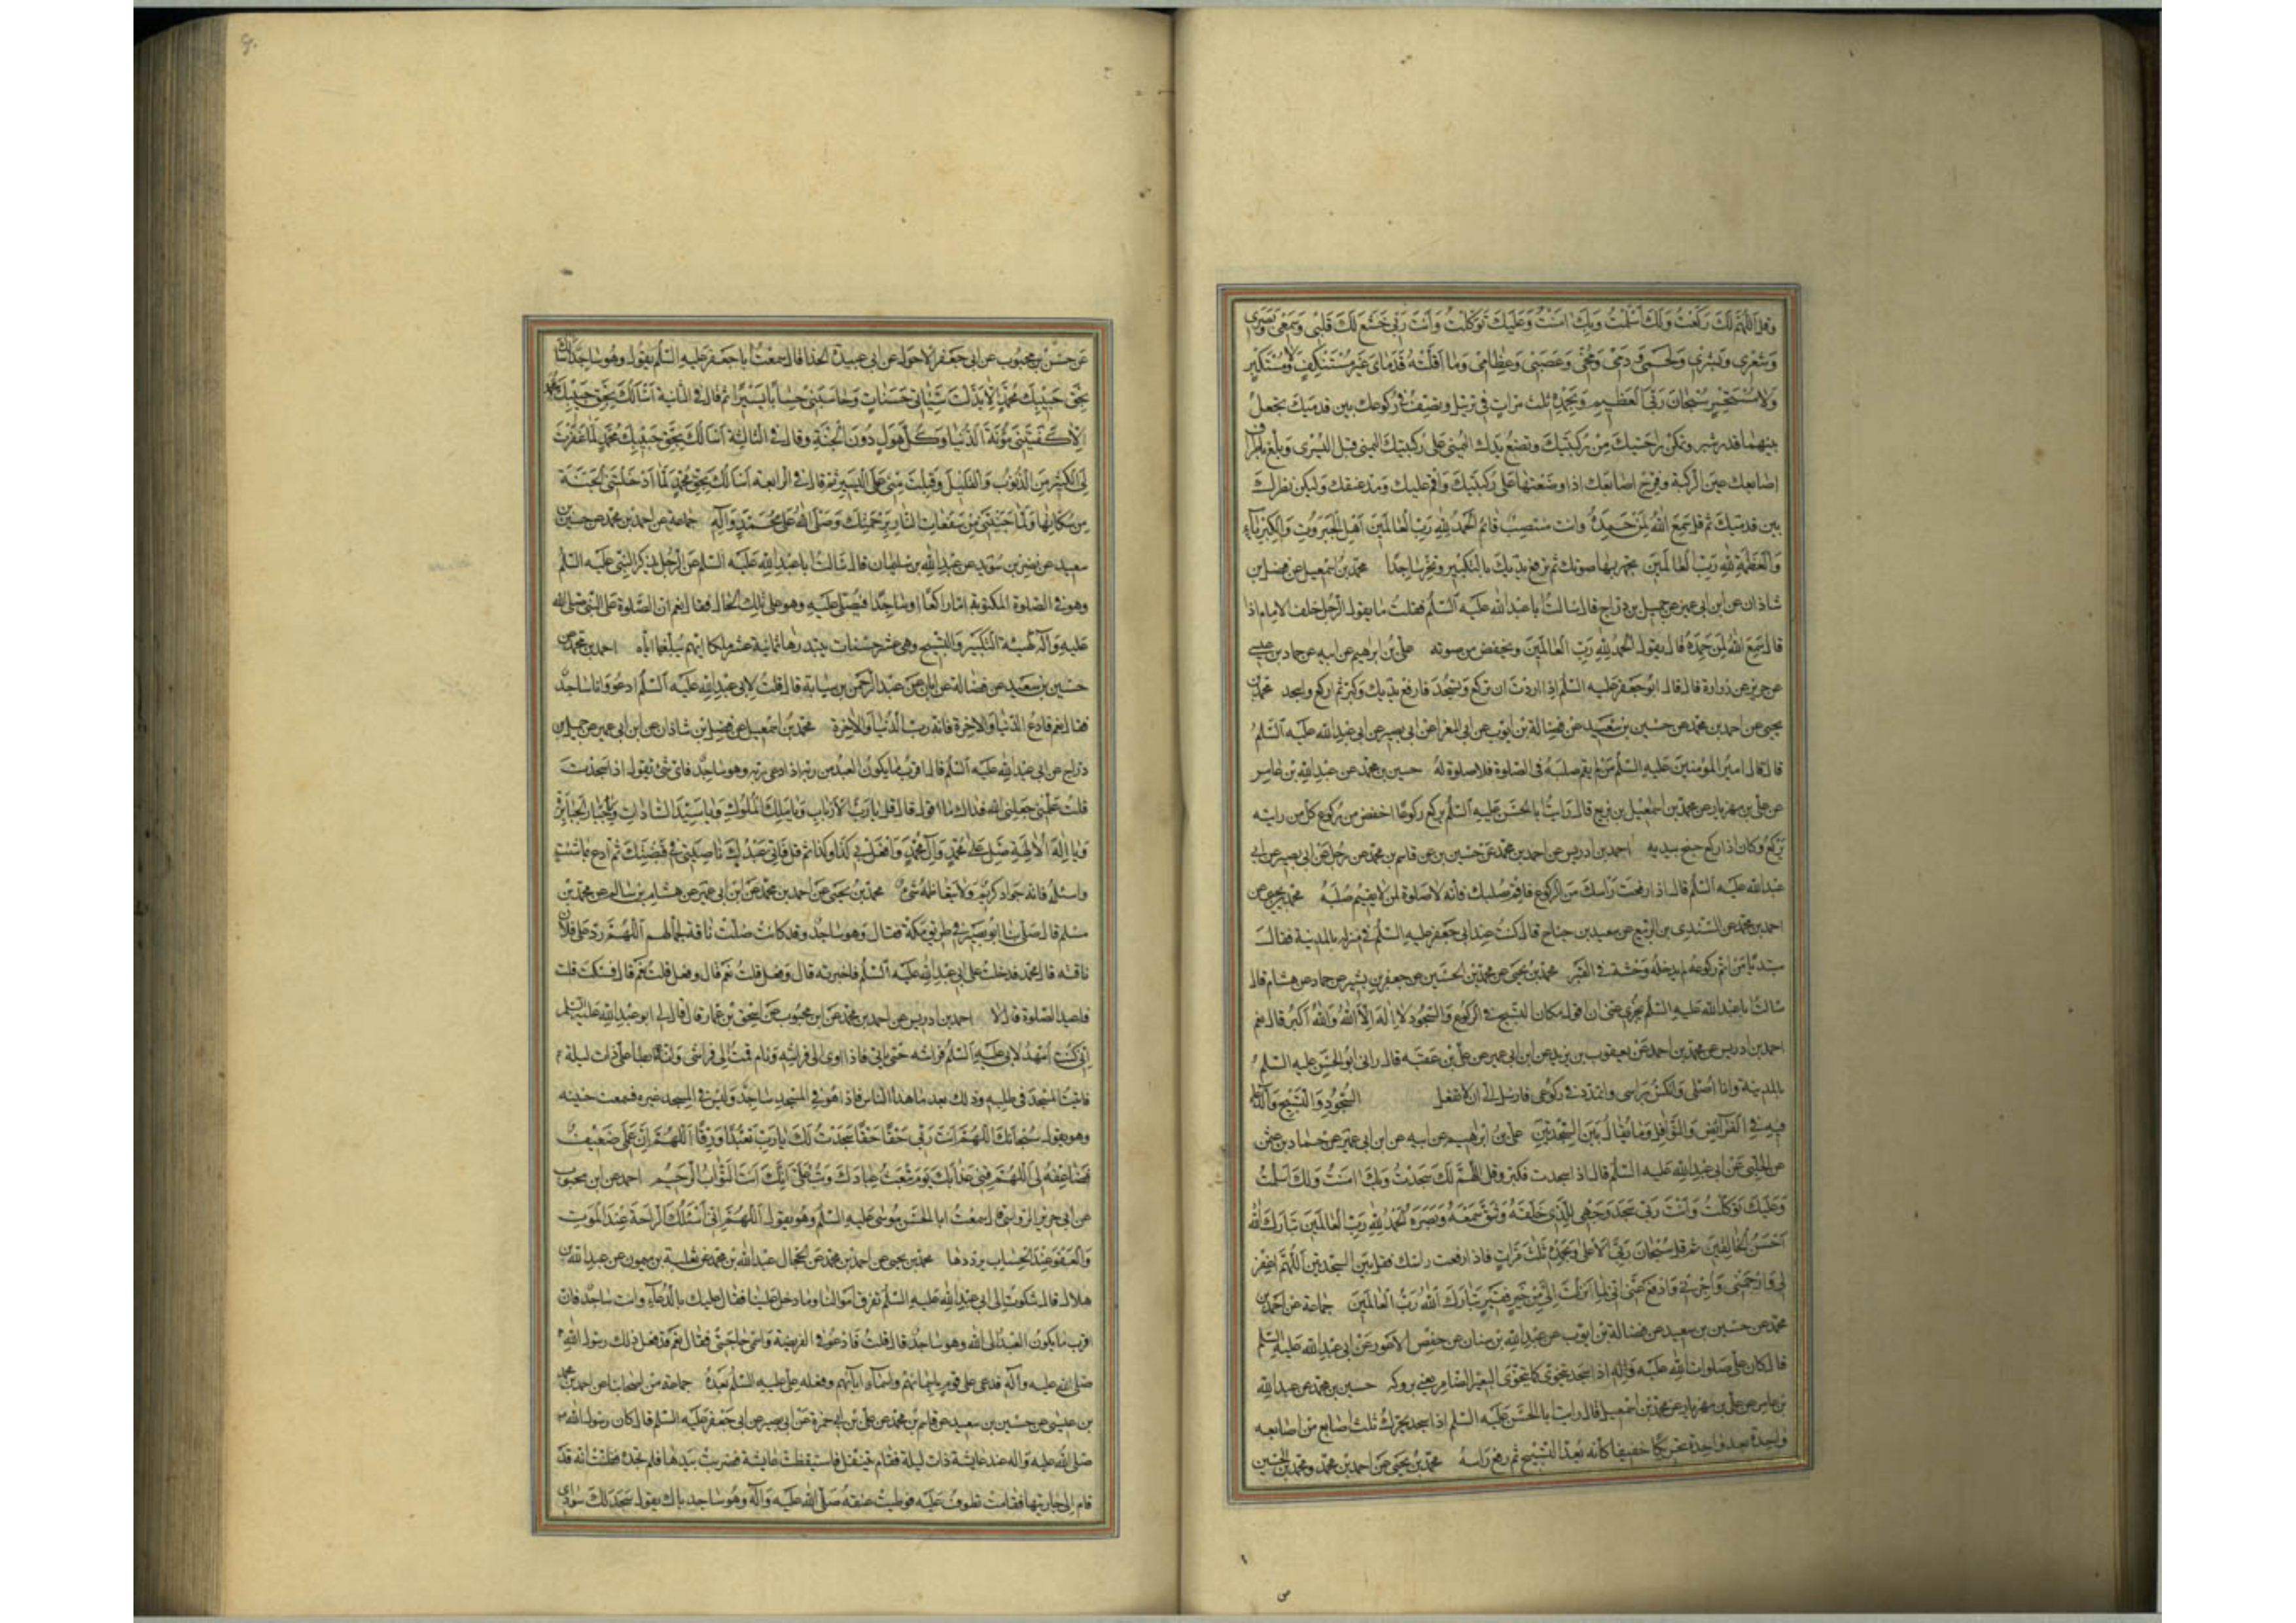 وقل اللهم لك ركعت ولك اسلمت وبك امنت وعليك توكلت وانت ربي خشع لك قلبي وسمعي وبصري
وشعري وبشري ولحمي ودمي ومخي وعصبي وعظامي وما اقلته قدماي غير مستنكف ولا مستكبر
ولا مستحسر سبحان ربي العظيم وبحمده ثلث مرات في ترتيل وتصف في ركوعك بين قدميك تجعل
بينهما قدر شبر وتمكن راحتيك من ركبتيك وتضع يدك اليمنى على ركبتيك اليمنى قبل اليسرى وبلغ باطراف
اصابعك عين الركبة وفرج اصابعك اذا وضعتها على ركبتيك واقم صلبك ومد عنقك وليكن نظرك
بين قدميك ثم قل سمع الله لمن حمده وانت منتصب قائم الحمد لله رب العالمين اهل الجبروت والكبرياء
والعظمة لله رب العالمين تجهر بها صوتك ثم ترفع يديك بالتكبير وتخر ساجدا محمد بن اسمعيل عن فضل بن
شاذان عن ابن ابي عمير عن جميل بن دراج قال سالت ابا عبد الله عليه السلم فقلت ما يقول الرجل خلف الامام اذا
قال سمع الله لمن حمده قال يقول الحمد لله رب العالمين ويخفض من صوته علي بن ابرهيم عن ابيه عن حماد بن عيسى
عن حريز عن زرارة قال قال ابو جعفر عليه السلم اذا اردت ان تركع وتسجد فارفع يديك وكبر ثم اركع واسجد محمد بن
يحيى عن احمد بن محمد عن حسين بن سعيد عن فضالة بن ايوب عن ابي المغرا عن ابي بصير عن ابي عبد الله عليه السلم
قال قال امير المؤمنين عليه السلم من لم يقم صلبه في الصلوة فلا صلوة له حسين بن محمد عن عبد الله بن عامر
عن علي بن مهزيار عن محمد بن اسمعيل بن بزيع قال رايت ابا الحسن عليه السلم يركع ركوعا اخفض من ركوع كل من رايته
يركع وكان اذا ركع جنح بيديه احمد بن ادريس عن احمد بن محمد عن حسين بن عن قاسم بن محمد عن رجل عن ابي بصير عن ابي
عبد الله عليه السلم قال اذا رفعت راسك من الركوع فاقم صلبك فانه لا صلوة لمن لا يقيم صلبه محمد بن يحيى عن
احمد بن محمد عن السندي بن الربيع عن سعيد بن جناح قال كنت عند ابي جعفر عليه السلم في منزله بالمدينة فقال
مبتدئا من اتم ركوعه لم يدخله وحشة في القبر محمد بن يحيى عن محمد بن الحسين عن جعفر بن بشير عن حماد عن هشام قال
سالت ابا عبد الله عليه السلم يجزي عني ان اقول مكان التسبيح في الركوع والسجود لا اله الا الله والله اكبر قال نعم
احمد بن ادريس عن محمد بن احمد عن يعقوب بن يزيد عن ابن ابي عمير عن علي بن عقبه قال راني ابو الحسن عليه السلم
بالمدينة وانا اصلي وانكس براسي واتمدد في ركوعي فارسل الي ان لا تفعل السجود والتسبيح والدعاء
فيه في الفرائض والنوافل وما يقال بين السجدتين علي بن ابرهيم عن ابيه عن ابن ابي عمير عن حماد بن عثمن
عن الحلبي عن ابي عبد الله عليه السلم قال اذا سجدت فكبر وقل اللهم لك سجدت وبك امنت ولك اسلمت
وعليك توكلت وانت ربي سجد وجهي للذي خلقه وشق سمعه وبصره الحمد لله رب العالمين تبارك الله
احسن الخالقين ثم قل سبحان ربي الاعلى وبحمده ثلث مرات فاذا رفعت راسك فقل بين السجدتين اللهم اغفر
لي وارحمني واجرني وادفع عني اني لما انزلت الي من خير فقير تبارك الله رب العالمين جماعة عن احمد بن
محمد عن حسين بن سعيد عن فضالة بن ايوب عن عبد الله بن سنان عن حفص الاعور عن ابي عبد الله عليه السلم
قال كان علي صلوات الله عليه واله اذا سجد يتخوى كما يتخوى البعير الضامر يعني بروكه حسين بن محمد عن عبد الله
بن عامر عن علي بن مهزيار عن محمد بن اسمعيل قال رايت ابا الحسن عليه السلم اذا سجد يحرك ثلث اصابع من اصابعه
واحدة بعد واحدة تحريكا خفيفا كانه يعد التسبيح ثم رفع راسه محمد بن يحيى عن احمد بن محمد ومحمد بن الحسين
عن حسن بن محبوب عن ابي جعفر الاحول عن ابي عبيدة الحذا قال سمعت ابا جعفر عليه السلم يقول وهو ساجد اسالك
بحق حبيبك محمد الا بدلت سيئاتي حسنات وحاسبتني حسابا يسيرا ثم قال في الثانية اسالك بحق حبيبك محمد
الا كفيتني مؤنة الدنيا وكل هول دون الجنة وقال في الثالثة اسالك بحق حبيبك محمد لما غفرت
لي الكثير من الذنوب والقليل وقبلت مني عملي اليسير ثم قال في الرابعة اسالك بحق محمد لما ادخلتني الجنة
من سكانها ولما نجيتني من سفعات النار برحمتك وصلى الله على محمد واله جماعة عن احمد بن محمد عن حسين بن
سعيد عن نضر بن سويد عن عبد الله بن سليمان قال سالت ابا عبد الله عليه السلم عن الرجل يذكر النبي عليه السلم
وهو في الصلوة المكتوبة اما راكعا او ساجدا فيصلي عليه وهو على تلك الحال فقال نعم ان الصلوة على النبي صلى الله
عليه واله كهيئة التكبير والتسبيح وهي عشر حسنات يبتدرها ثمانية عشر ملكا ايهم يبلغها اياه احمد بن محمد عن
حسين بن سعيد عن فضالة عن ابان عن عبد الرحمن بن سيابة قال قلت لابي عبد الله عليه السلم ادعو وانا ساجد
فقال نعم فادع الدنيا والاخرة فانه رب الدنيا والاخرة محمد بن اسمعيل عن فضل بن شاذان عن ابن ابي عمير عن جميل بن
دراج عن ابي عبد الله عليه السلم قال اقرب ما يكون العبد من ربه اذا دعى ربه وهو ساجد فاي شئ تقول اذا سجدت
قلت علمني جعلني الله فداك ما اقول قال قل يا رب الارباب ويا ملك الملوك ويا سيد السادات ويا جبار الجبابرة
ويا اله الالهة صل على محمد وال محمد وافعل بي كذا وكذا ثم قل فاني عبدك ناصيتي في قبضتك ثم ادع بما شئت
واسئله فانه جواد كريم ولا يتعاظمه شئ محمد بن يحيى عن احمد بن محمد عن ابن ابي عمير عن هشام بن سالم عن محمد بن
مسلم قال صلى بنا ابو بصير في طريق مكة فقال وهو ساجد وقد كانت ضلت ناقة لجمالهم اللهم رد على فلان
ناقته قال محمد فدخلت على ابي عبد الله عليه السلم فاخبرته قال وفعل قلت نعم قال وفعل قلت نعم قال فسكت قلت
فاعيد الصلوة قال لا احمد بن ادريس عن احمد بن محمد عن ابن محبوب عن اسحق بن عمار قال قال لي ابو عبد الله عليه السلم
اني كنت امهد لابي عليه السلم فراشه حتى ياتي فاذا اوى الى فراشه ونام قمت الى فراشي وانه ابطا علي ذات ليلة
فاتيت المسجد في طلبه وذلك بعد ما هدا الناس فاذا هو في المسجد ساجد وليس في المسجد غيره فسمعت حنينه
وهو يقول سبحانك اللهم انت ربي حقا حقا سجدت لك يا رب تعبدا ورقا اللهم ان عملي ضعيف
فضاعفه لي اللهم قني عذابك يوم تبعث عبادك وتب علي انك انت التواب الرحيم احمد عن ابن محبوب
عن ابي جرير الرواسي قال سمعت ابا الحسن موسى عليه السلم وهو يقول اللهم اني اسئلك الراحة عند الموت
والعفو عند الحساب يرددها محمد بن يحيى عن احمد بن محمد عن الحجال عبد الله بن محمد عن ثعلبة بن ميمون عن عبد الله بن
هلال قال شكوت الى ابي عبد الله عليه السلم تفرق اموالنا وما دخل علينا فقال عليك بالدعاء وانت ساجد فان
اقرب ما يكون العبد الى الله وهو ساجد قال قلت فادعو في الفريضة واسمي حاجتي فقال نعم قد فعل ذلك رسول الله
صلى الله عليه واله فدعى على قوم باسمائهم واسماء ابائهم وفعله علي عليه السلم بعده جماعة من اصحابنا عن احمد بن محمد
بن عيسى عن حسين بن سعيد عن قاسم بن محمد عن علي بن ابي حمزة عن ابي بصير عن ابي جعفر عليه السلم قال كان رسول الله
صلى الله عليه واله عند عايشة ذات ليلة فقام يتنفل فاستيقظت عايشة فضربت بيدها فلم تجده فظنت انه قد
قام الى جاريتها فقامت تطوف عليه فوطئت عنقه صلى الله عليه واله وهو ساجد باك يقول سجد لك سوادي